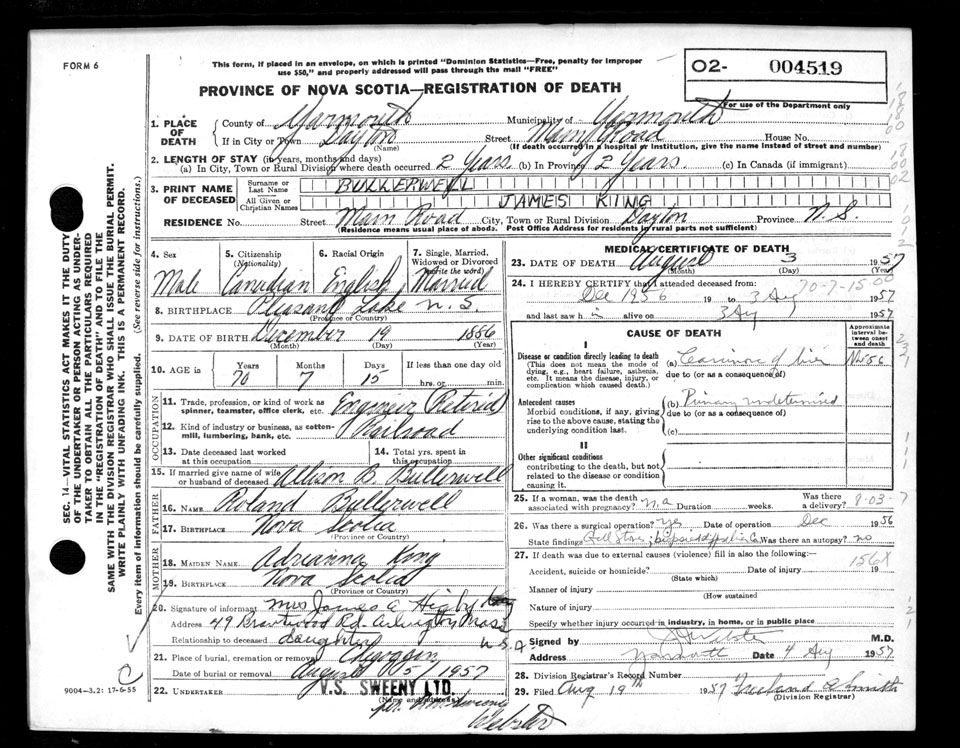 FORM 6
This form, if placed in an envelope, on which is printed "Dominion Statistics—Free, penalty for improper
use $50," and properly addressed will pass through the mail "FREE"
O2- 004519
PROVINCE OF NOVA SCOTIA—REGISTRATION OF DEATH
For use of the Department only
1. PLACE OF DEATH
County of Yarmouth Municipality of Yarmouth
If in City or Town Dayton Street Main Road House No.
(Name) (If death occurred in a hospital or institution, give the name instead of street and number)
2. LENGTH OF STAY (in years, months and days)
(a) In City, Town or Rural Division where death occurred 2 Years. (b) In Province 2 Years. (c) In Canada (if immigrant)
3. PRINT NAME OF DECEASED
Surname or Last Name BULLERWELL
All Given or Christian Names JAMES KING
RESIDENCE No. Street Main Road City, Town or Rural Division Dayton Province N.S.
(Residence means usual place of abode. Post Office Address for residents in rural parts not sufficient)
4. Sex 5. Citizenship (Nationality) 6. Racial Origin 7. Single, Married, Widowed or Divorced (write the word)
Male Canadian English Married
8. BIRTHPLACE Pleasant Lake N.S.
(Province or Country)
9. DATE OF BIRTH December 19 1886
(Month) (Day) (Year)
10. AGE in Years Months Days If less than one day old
70 7 15 hrs. or min.
OCCUPATION
11. Trade, profession, or kind of work as spinner, teamster, office clerk, etc. Engineer Retired
12. Kind of industry or business, as cotton-mill, lumbering, bank, etc. Railroad
13. Date deceased last worked at this occupation 14. Total yrs. spent in this occupation
15. If married give name of wife or husband of deceased B. Bullerwell
FATHER
16. NAME Roland Bullerwell
17. BIRTHPLACE Nova Scotia
(Province or Country)
MOTHER
18. MAIDEN NAME Adrianna King
19. BIRTHPLACE Nova Scotia
(Province or Country)
20. Signature of informant Mrs James A Higby
Address 49 Brantwood Rd. Arlington Mass
U.S.A.
Relationship to deceased daughter
21. Place of burial, cremation or removal Chegoggin
Date of burial or removal August 5 1957
22. UNDERTAKER V.S. SWEENY LTD.
(Name and address)
Webster
9004—3.2: 17-6-55
SEC. 14—VITAL STATISTICS ACT MAKES IT THE DUTY
OF THE UNDERTAKER OR PERSON ACTING AS UNDER-
TAKER TO OBTAIN ALL THE PARTICULARS REQUIRED
IN THE "REGISTRATION OF DEATH" AND TO FILE THE
SAME WITH THE DIVISION REGISTRAR WHO SHALL ISSUE THE BURIAL PERMIT.
WRITE PLAINLY WITH UNFADING INK. THIS IS A PERMANENT RECORD.
Every item of information should be carefully supplied. (See reverse side for instructions.)
MEDICAL CERTIFICATE OF DEATH
23. DATE OF DEATH August 3 1957
(Month) (Day) (Year)
24. I HEREBY CERTIFY that I attended deceased from: 70-7-15.00
Dec 1956 19 to 3 Aug 1957
and last saw h alive on 3 Aug 1957
CAUSE OF DEATH
Approximate interval between onset and death
I
Disease or condition directly leading to death
(This does not mean the mode of dying, e.g., heart failure, asthenia, etc. It means the disease, injury, or complication which caused death.)
(a) Carcinoma of liver Nov 56
due to (or as a consequence of)
Antecedent causes
Morbid conditions, if any, giving rise to the above cause, stating the underlying condition last.
(b) Primary undetermined
due to (or as a consequence of)
(c)
II
Other significant conditions
contributing to the death, but not related to the disease or condition causing it.
25. If a woman, was the death associated with pregnancy? n.a Duration weeks. Was there a delivery?
26. Was there a surgical operation? yes Date of operation Dec 1956
State findings Gall Stones; Was there an autopsy? no
27. If death was due to external causes (violence) fill in also the following:—
156X
Accident, suicide or homicide? Date of injury 19
(State which)
Manner of injury
(How sustained)
Nature of injury
Specify whether injury occurred in industry, in home, or in public place
Signed by M.D.
Address Yarmouth Date 4 Aug 1957
28. Division Registrar's Record Number
29. Filed Aug 19th 1957
(Division Registrar)